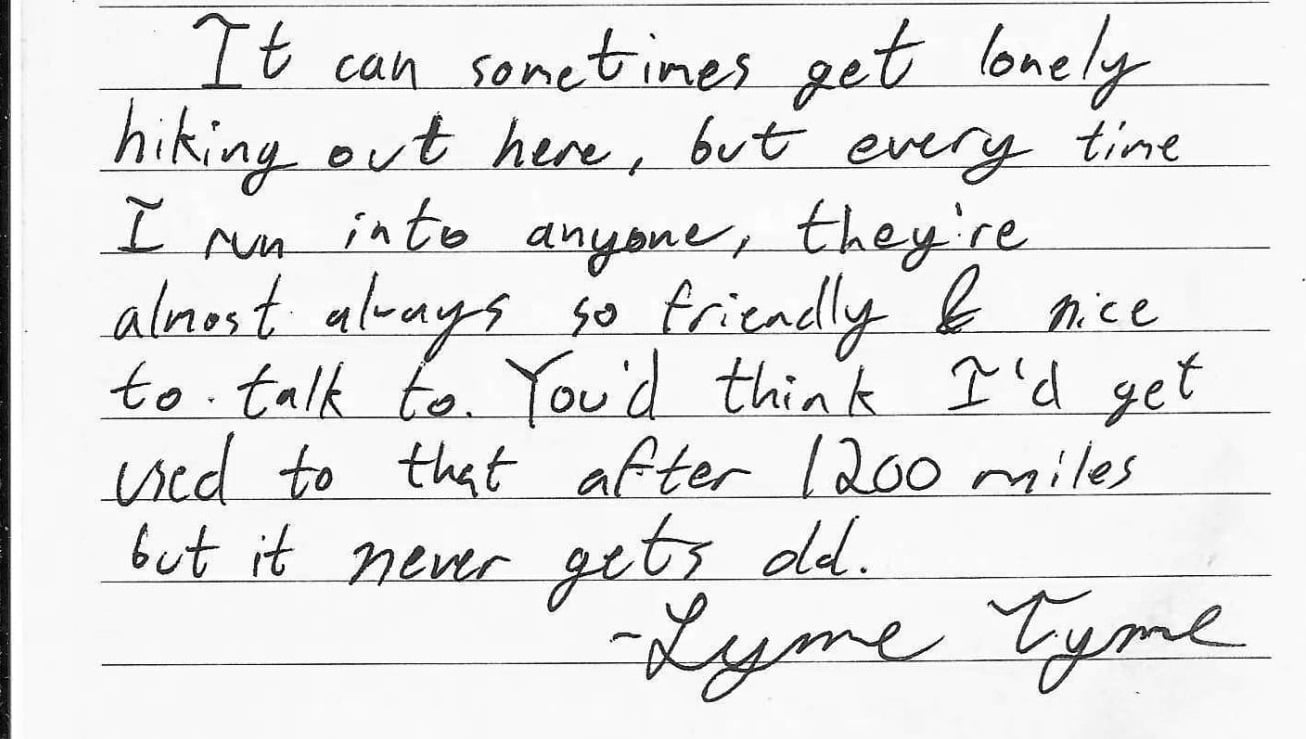 It can sometimes get lonely
hiking out here, but every time
I run into anyone, they're
almost always so friendly & nice
to talk to. You'd think I'd get
used to that after 1200 miles
but it never gets old.
-Lyme Tyme